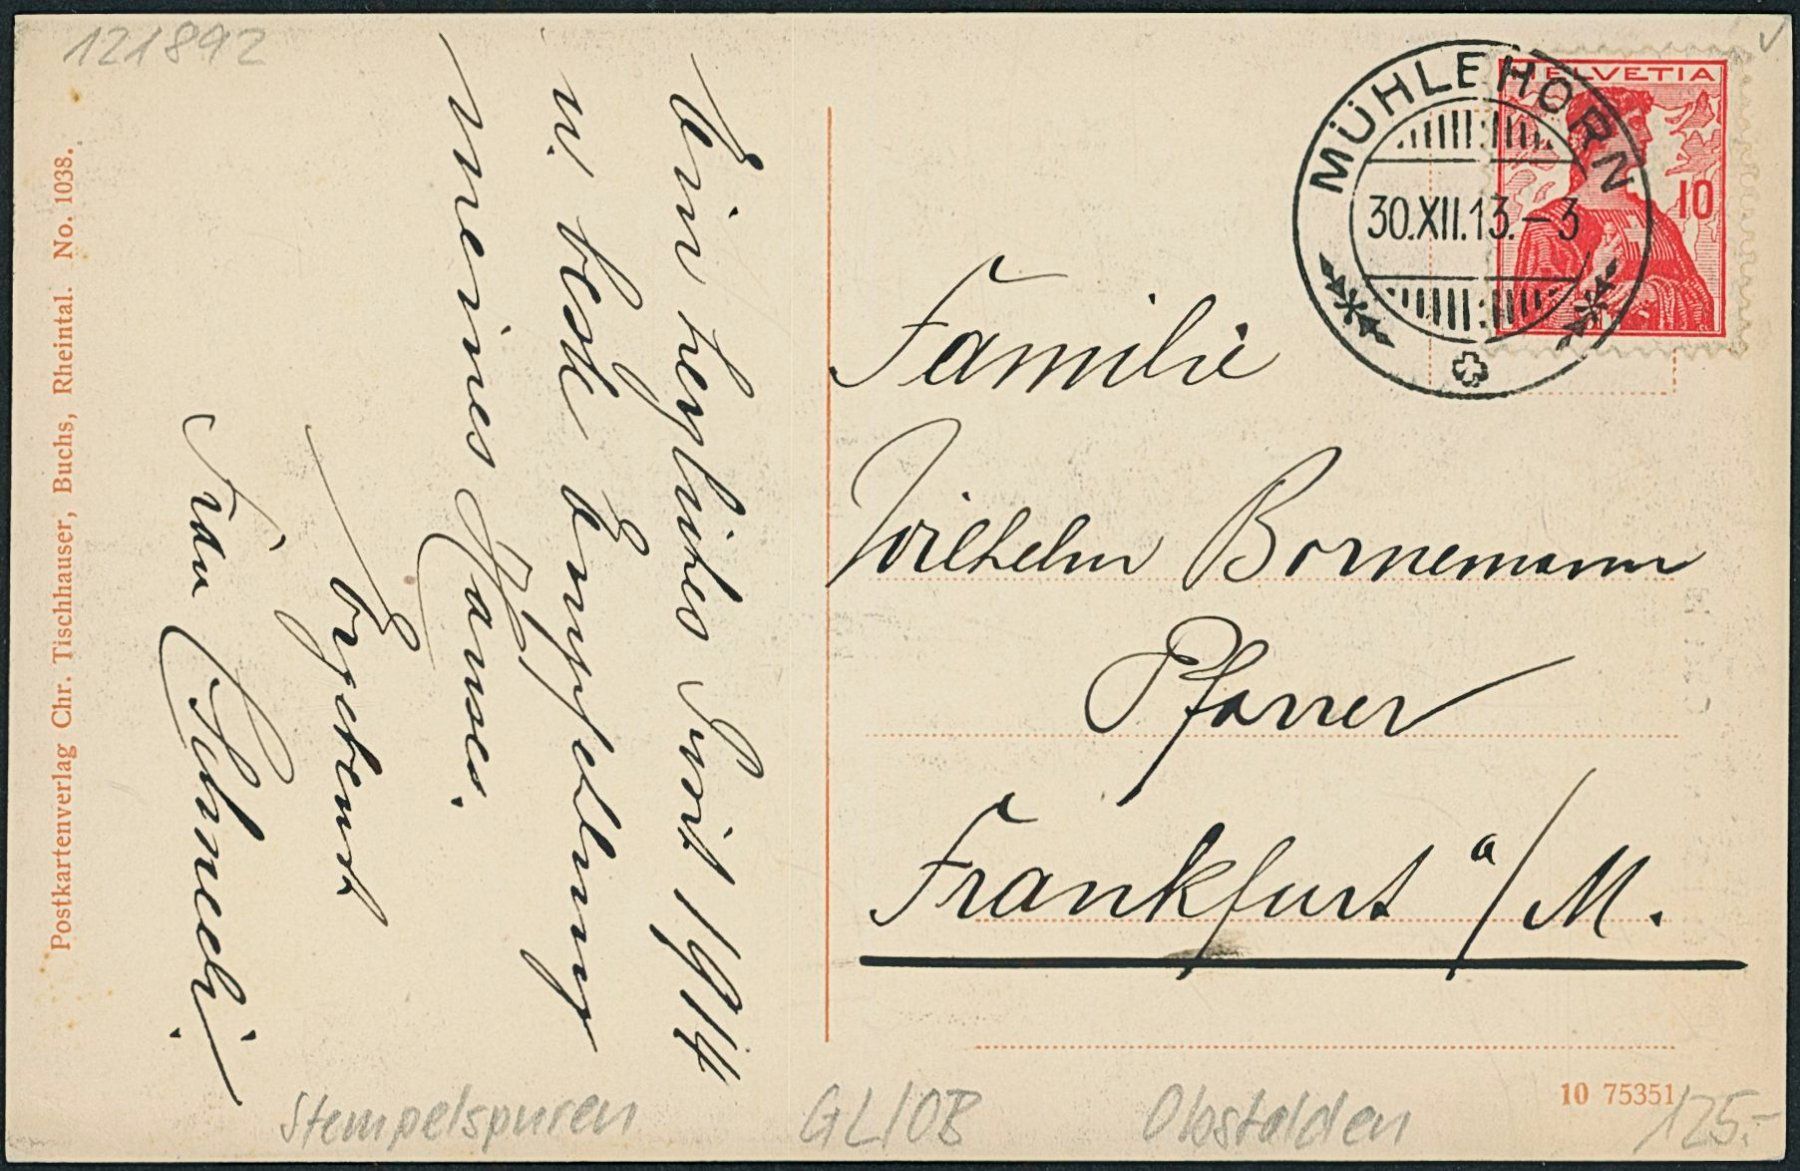 121892
HELVETIA
10
MÜHLEHORN
30.XII.13.-3
Ein herzliches Prosit 1914
u. beste Empfehlung
meines Hauses.
Ergebenst
Frau Schneeli.
Familie
Wilhelm Bornemann
Pfarrer
Frankfurt a/M.
Postkartenverlag Chr. Tischhauser, Buchs, Rheintal. No. 1038.
10 75351
Stempelspuren
GL/OB
Obstalden
125.-